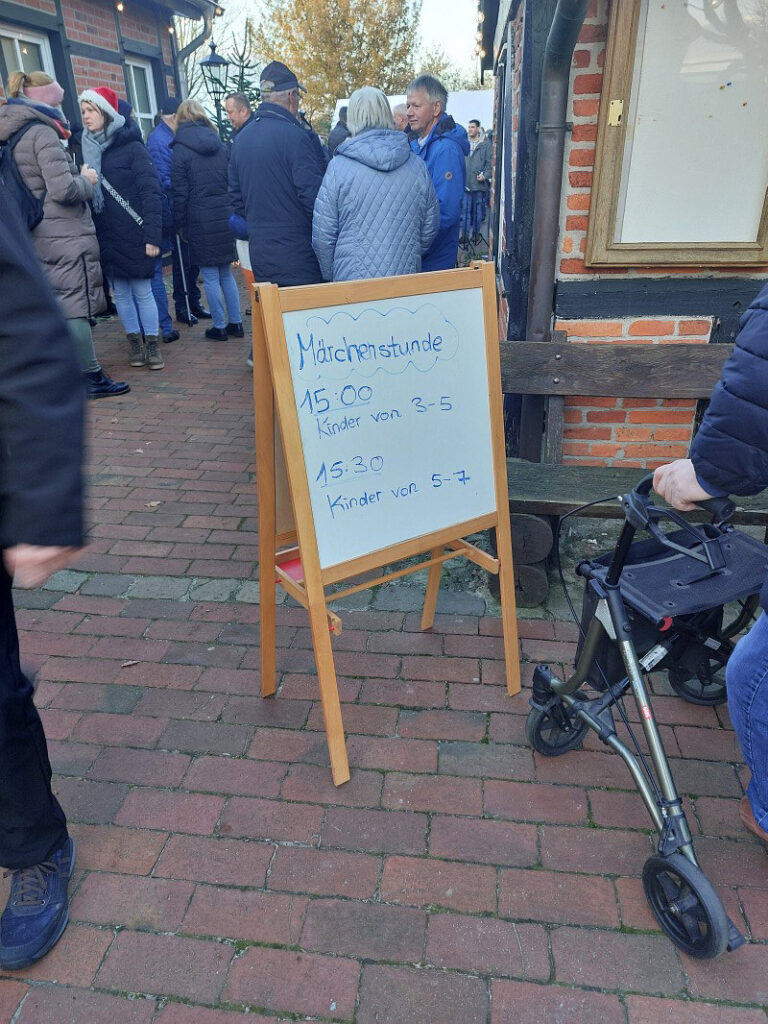 Märchenstunde
15:00
Kinder von 3-5
15:30
Kinder von 5-7